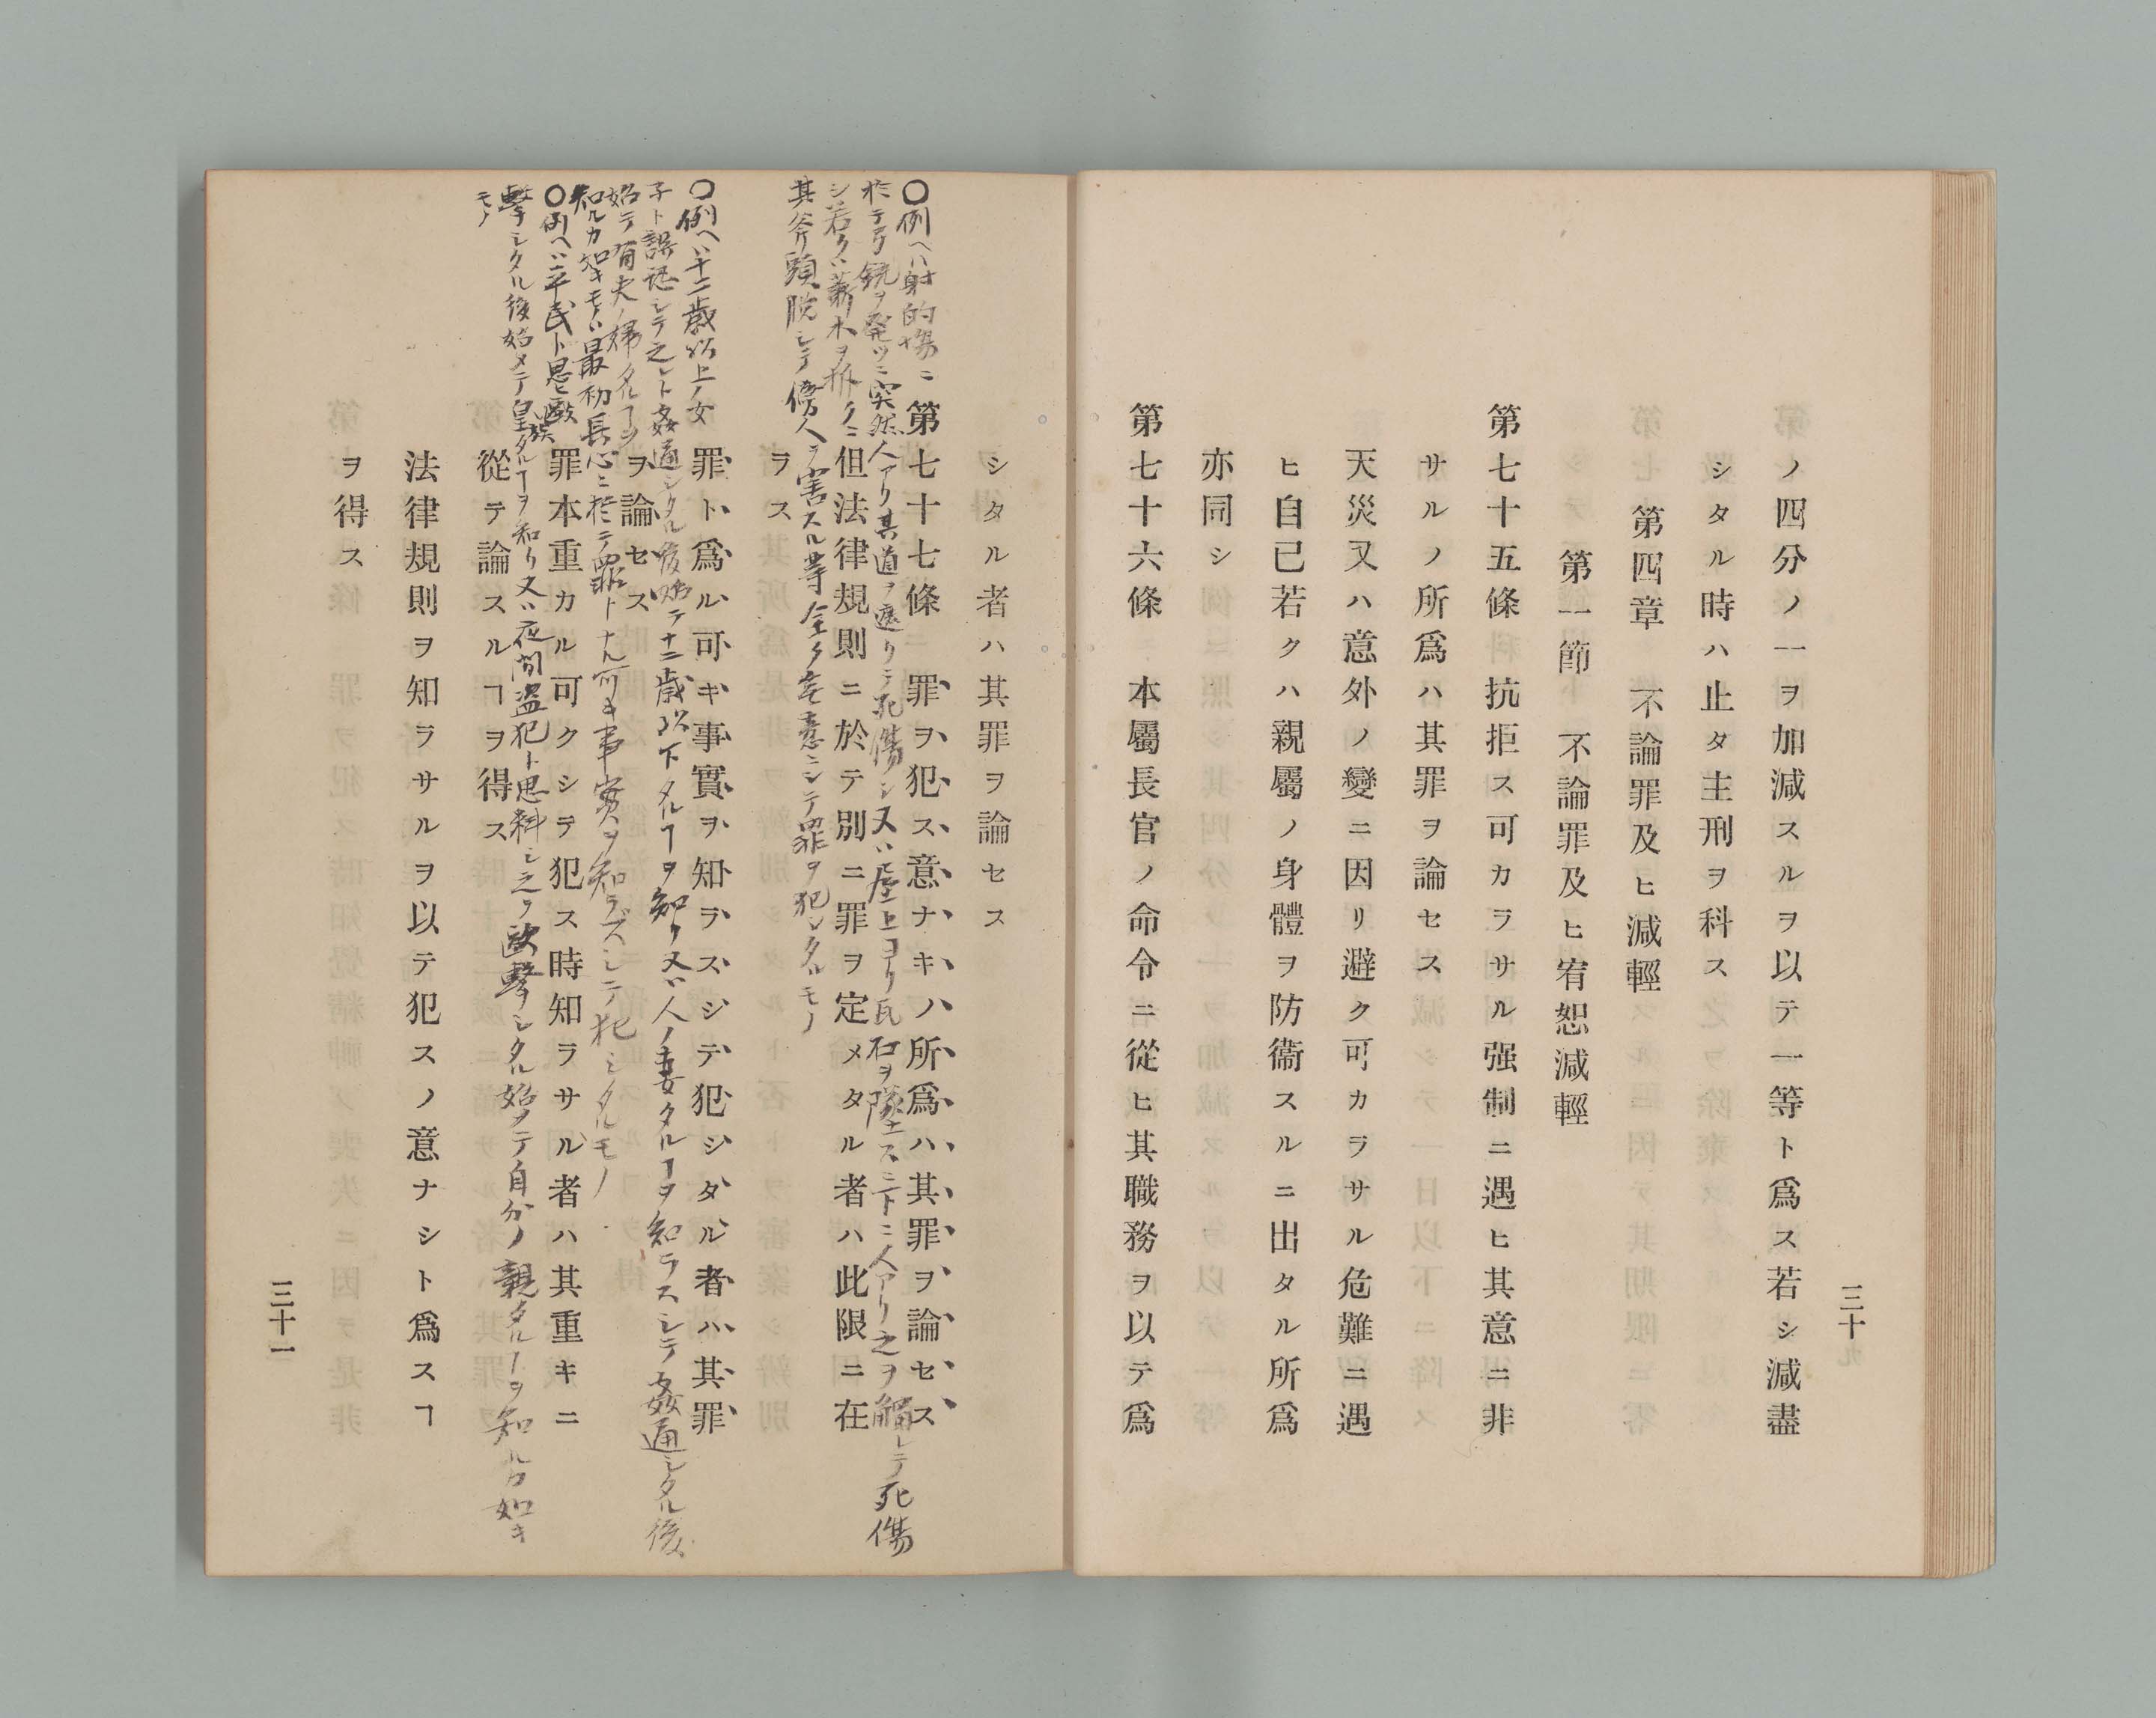 三十
ノ四分ノ一ヲ加減スルヲ以テ一等ト爲ス若シ減盡
シタル時ハ止タ主刑ヲ科ス
第四章　不論罪及ヒ減輕
第一節　不論罪及ヒ宥恕減輕
第七十五條　抗拒ス可カラサル强制ニ遇ヒ其意ニ非
サルノ所爲ハ其罪ヲ論セス
天災又ハ意外ノ變ニ因リ避ク可カラサル危難ニ遇
ヒ自己若クハ親屬ノ身體ヲ防衞スルニ出タル所爲
亦同シ
第七十六條　本屬長官ノ命令ニ從ヒ其職務ヲ以テ爲
シタル者ハ其罪ヲ論セス
第七十七條　罪ヲ犯ス意ナキノ所爲ハ其罪ヲ論セス
但法律規則ニ於テ別ニ罪ヲ定メタル者ハ此限ニ在
ラス
罪ト爲ル可キ事實ヲ知ラスシテ犯シタル者ハ其罪
ヲ論セス
罪本重カル可クシテ犯ス時知ラサル者ハ其重キニ
從テ論スルヿヲ得ス
法律規則ヲ知ラサルヲ以テ犯スノ意ナシト爲スヿ
ヲ得ス
三十一
〇例ヘハ射的場ニ
於テ銃ヲ発ツニ突然人アリ其道ヲ遮リテ死傷シ又ハ屋上ヨリ瓦石ヲ墜スニ下ニ人アリ之ヲ觸レテ死傷
シ若クハ薪木ヲ拆クニ
其斧頭脱シテ傍人ヲ害スル等全ク無意ニシテ罪ヲ犯シタルモノ
〇例ヘハ十二歳以上ノ女
子ト誤認シテ之レト姦通シタル後始テ十二歳以下タルヿヲ知リ又ハ人ノ妻タルヿヲ知ラスシテ姦通シタル後
始テ有夫ノ婦タルヿヲ
知ルカ如キモノハ最初長心ニ於テ罪トナル可キ事実ヲ知ラズシテ犯シタルモノ
〇例ヘハ平民ト思ヒ毆
擊シタル後始メテ皇族タルヿヲ知リ又ハ夜間盗犯ト思料シ之ヲ毆擊シタル始メテ自分ノ親タルヿヲ知ルカ如キ
モノ